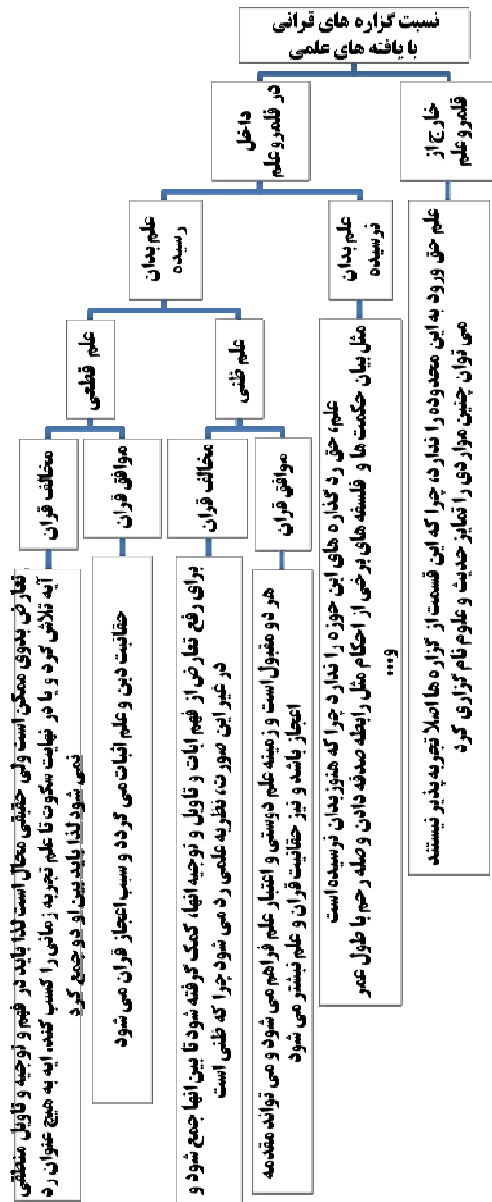 نسبت گزاره های قرآنی
با یافته های علمی
خارج از
قلمرو علم
علم حق ورود به این محدوده را ندارد، چرا که این قسمت از گزاره ها اصلا تجربه پذیر نیستند
می توان چنین مواردی را تمایز حدیث و علوم نام گزاری کرد
داخل
در قلمرو علم
علم بدان
نرسیده
علم، حق رد گذاره های این حوزه را ندارد چرا که هنوز بدان نرسیده است
مثل بیان حکمت ها و فلسفه های برخی از احکام مثل رابطه صدقه دادن و صله رحم با طول عمر
و...
علم بدان
رسیده
علم ظنی
موافق قرآن
هر دو مقبول است و زمینه علم دوستی و اعتبار علم فراهم می شود و می تواند مقدمه
اعجاز باشد و نیز حقانیت قرآن و علم بیشتر می شود
مخالف قرآن
برای رفع تعارض از فهم ایات و تاویل و توجیه آنها، کمک گرفته شود تا بین آنها جمع شود و
در غیر این صورت، نظریه علمی رد می شود چرا که ظنی است
علم قطعی
موافق قرآن
حقانیت دین و علم اثبات می گردد و سبب اعجاز قرآن می شود
مخالف قرآن
تعارض بدوی ممکن است ولی حقیقی محال است لذا باید در فهم و توجیه و تاویل منطقی
آیه تلاش کرد و یا در نهایت سکوت تا علم تجربه زمانی را کسب کند، ایه به هیچ عنوان رد
نمی شود لذا باید بین او دو جمع کرد